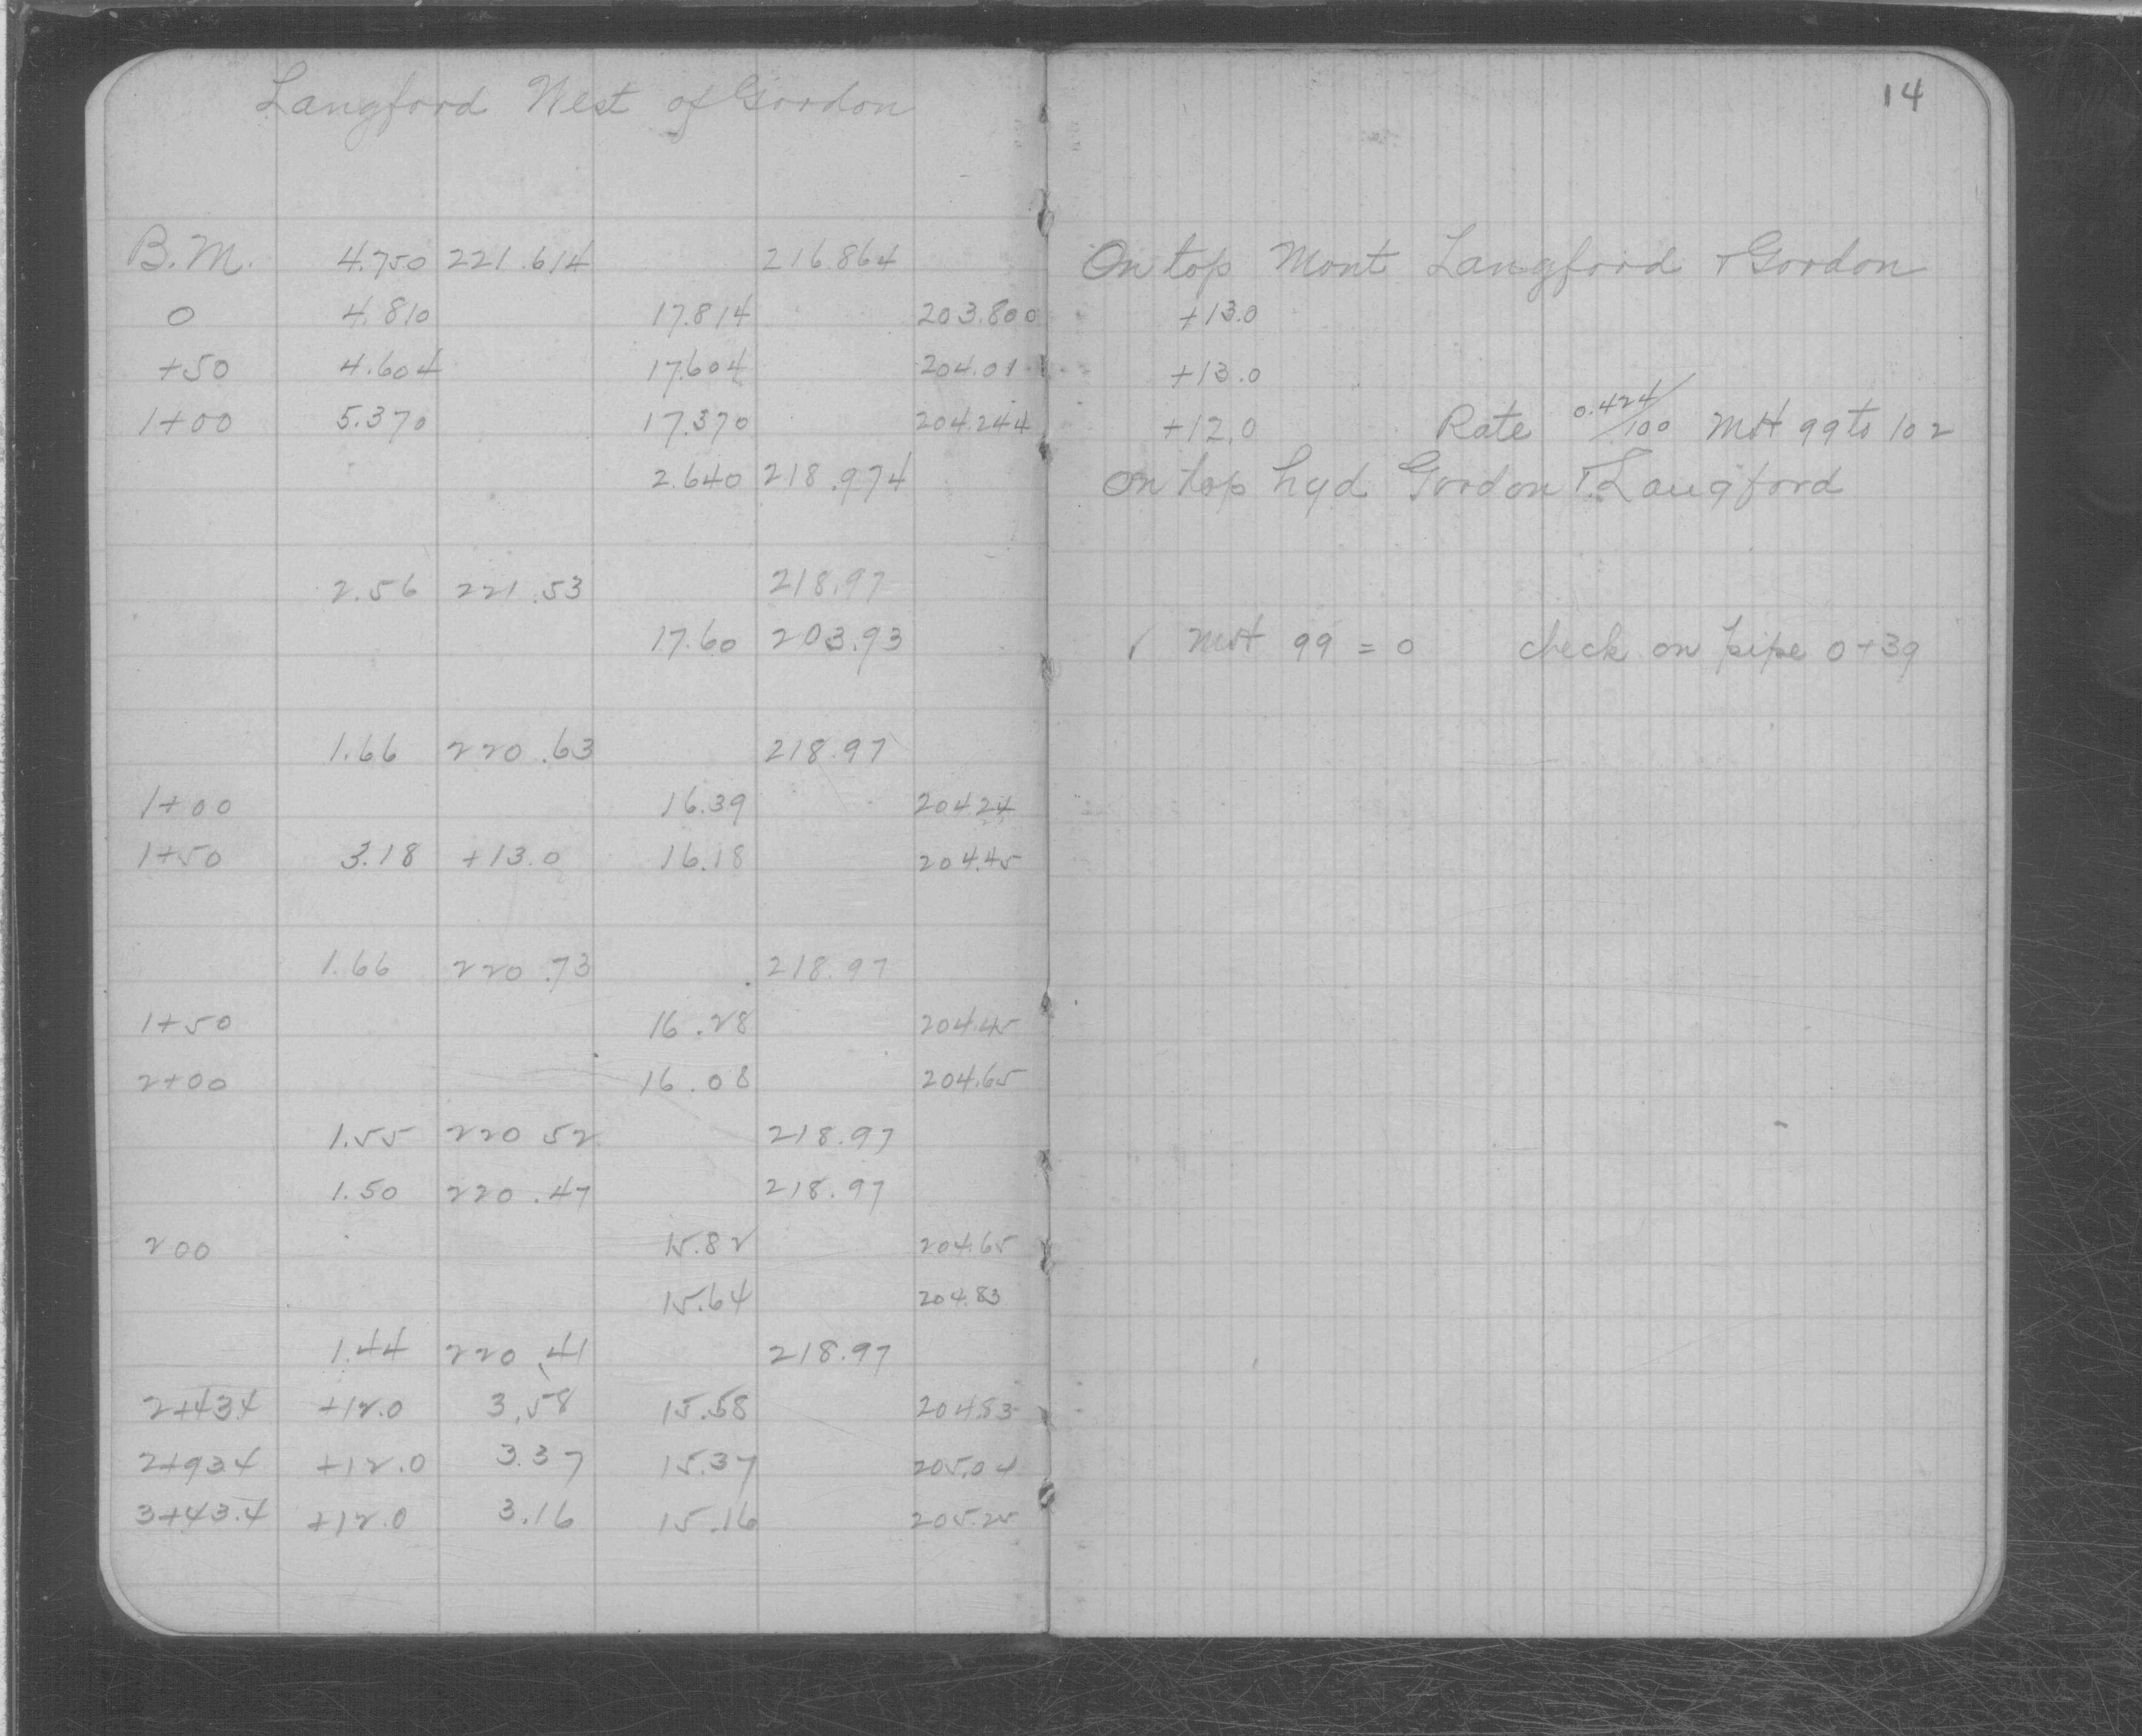 Langford West of Gordon
14
B.M. 4.750 221.614 216.864 On top Mont Langford & Gordon
0 4.810 17.814 203.800 +13.0
+50 4.604 17.604 204.01 +13.0
1+00 5.370 17.370 204.244 +12.0 Rate 0.424/100 MH 99 to 102
2.640 218.974 On top hyd Gordon & Langford
2.56 221.53 218.97
17.60 203.93 ✓ MH 99 = 0 check on pipe 0+39
1.66 220.63 218.97
1+00 16.39 204.24
1+50 3.18 +13.0 16.18 204.45
1.66 220.73 218.97
1+50 16.28 204.45
2+00 16.08 204.65
1.55 220 52 218.97
1.50 220.47 218.97
200 15.82 204.65
15.64 204.83
1.44 220.41 218.97
2+43.4 +12.0 3.58 15.58 204.83
2+93.4 +12.0 3.37 15.37 205.04
3+43.4 +12.0 3.16 15.16 205.25